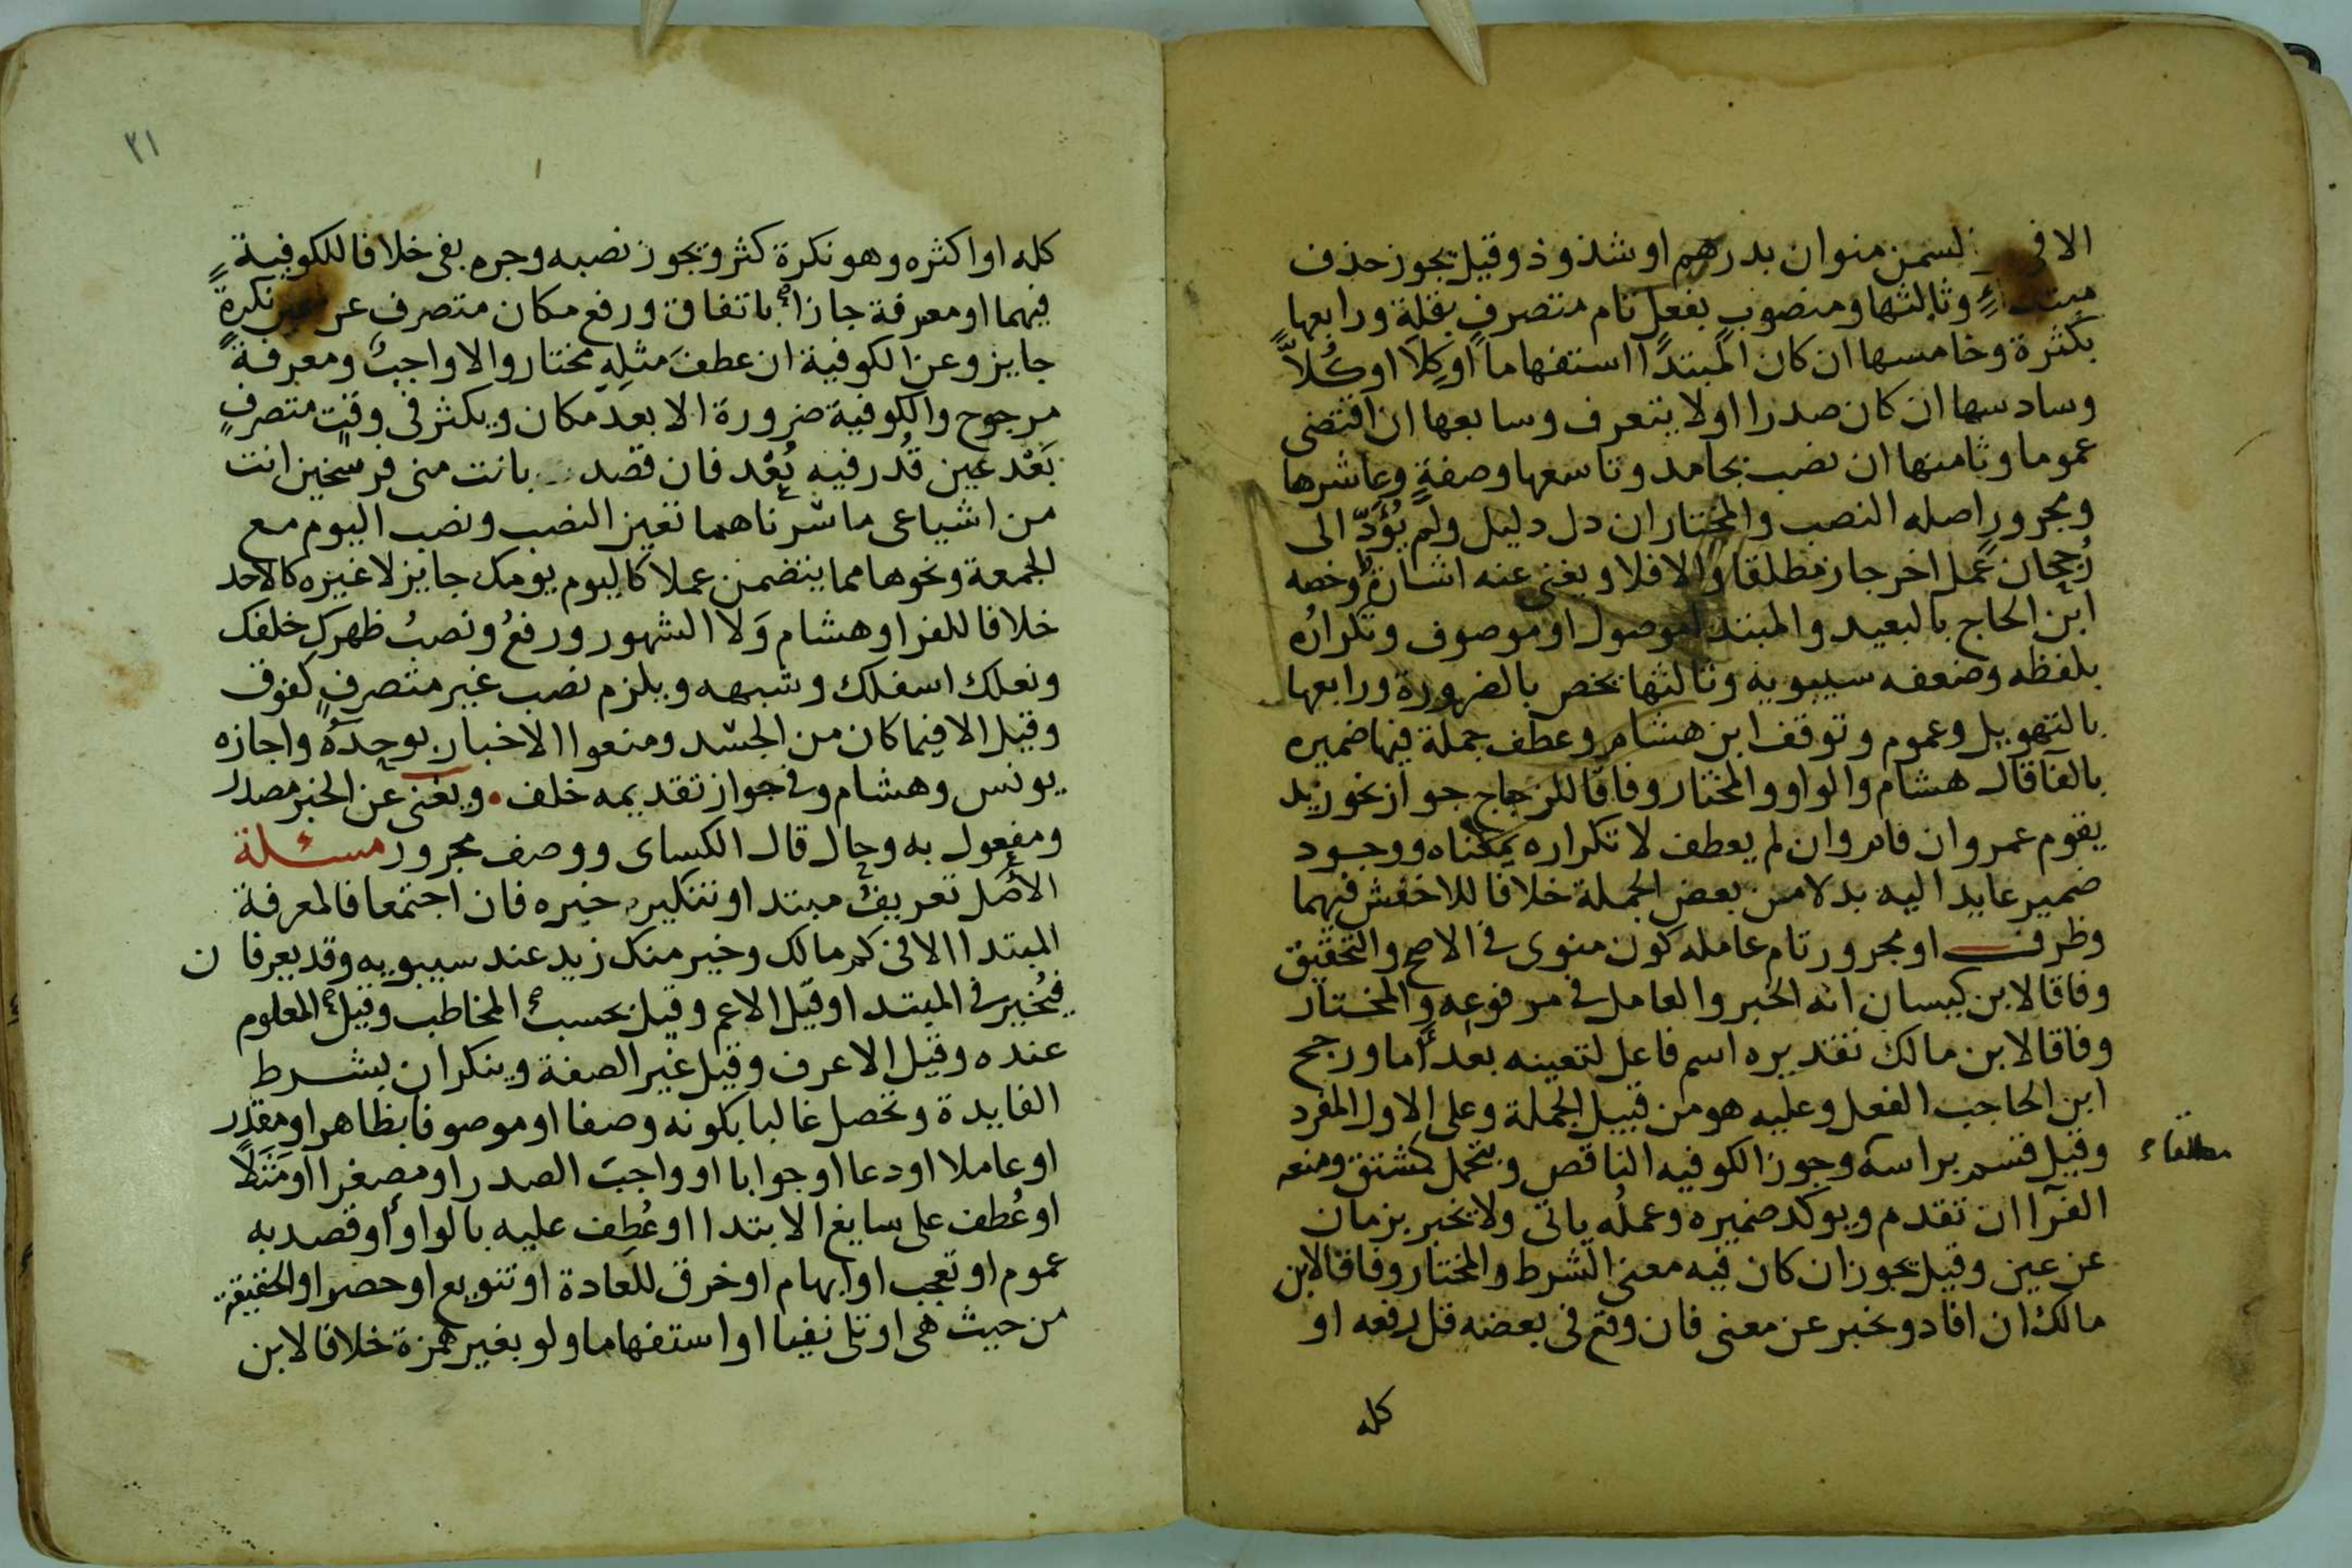 الا في السمن منوان بدرهم او شذوذ وقيل يجوز حذف
مبتدا وثالثها ومنصوب بفعل تام متصرف بقلة ورابعها
بكثرة وخامسها ان كان المبتدا استفهاما او كلا او كُلاًّ
وسادسها ان كان صدرا او لا يتعرف وسابعها ان اقتضى
عموما وثامنها ان نصب بجامد وتاسعها وصفةٍ وعاشرها
ومجرور اصله النصب والمختار ان دل دليل ولم يؤدّ الى
رُجحان عمل اخر جاز مطلقا والا فلا ويغنى عنه اشارة وخصه
ابن الحاج بالبعيد والمبتدا موصول او موصوف وتكرارُه
بلفظه وضعفه سيبويه وثالثها يخص بالضرورة ورابعها
بالتهويل وعموم وتوقف ابن هشام وعطف جملة فيها ضميره
بالفا قال هشام والواو والمختار وفاقا للزجاج جواز نحو زيد
يقوم عمرو ان قام وان لم يعطف لا تكراره بمعناه ووجود
ضمير عايد اليه بدلا من بعض الجملة خلافا للاخفش فيهما
وظرف او مجرور تام عامله كون منوى في الاصح والتحقيق
وفاقا لابن كيسان انه الخبر والعامل في مرفوعه والمختار
وفاقا لابن مالك تقديره اسم فاعل لتعينه بعد اما ورجح
ابن الحاجب الفعل وعليه هو من قبيل الجملة وعلى الاول المفرد
وقيل قسم براسه وجوز الكوفيه الناقص ويتحمل كمشتق ومنعه
مطلقا
الفرّا ان تقدم ويوكد ضميره وعملُه ياتى ولا يخبر بزمان
عن عين وقيل يجوز ان كان فيه معنى الشرط والمختار وفاقا لابن
مالك ان افاد ويخبر عن معنى فان وقع في بعضه قل رفعه او
كله
٢١
كله او اكثره وهو نكرة كثر ويجوز نصبه وجره بفى خلافا للكوفية
فيهما او معرفة جازا باتفاق ورفع مكان متصرف عن عين نكرةٍ
جايز وعن الكوفية ان عطف مثلِهِ مختار والا واجب ومعرفة
مرجوح والكوفية ضرورة الا بعد مكان ويكثر في وقت متصرفٍ
بَعْد عين قُدر فيه بُعْد فان قصد بانت منى فرسخين انت
من اشياعى ما سرناهما تعين النصب ونصب اليوم مع
الجمعة ونحوها مما يتضمن عملا كاليوم يومك جايز لا غيره كالاحد
خلافا للفرا وهشام وَلا الشهور ورفعُ ونصبُ ظهرك خلفك
ونعلك اسفلك وشبهه ويلزم نصب غير متصرف كفوق
وقيل الا فيما كان من الجسد ومنعوا الاخبار بوحده واجازه
يونس وهشام وفي جواز تقديمه خلف • ويغنى عن الخبر مصدر
ومفعول به وحال قال الكساى ووصف مجرور مسئلة
الاصل تعريف مبتدا وتنكير خبره فان اجتمعا فالمعرفة
المبتدا الا في كم مالك وخير منك زيد عند سيبويه وقد يعرفان
فيُخير في المبتدا وقيل الاعم وقيل بحسب المخاطب وقيل المعلوم
عنده وقيل الاعرف وقيل غير الصفة وينكران بشرط
الفايدة وتحصل غالبا بكونه وصفا او موصوفا بظاهر او مقدر
او عاملا او دعا او جوابا او واجب الصدر او مصغرا او مَثَلاً
او عُطف على سايغ الابتدا او عُطِف عليه بالواو أو قصد به
عموم او تعجب او ابهام او خرق للعادة او تنويع او حصر او الحقيقة
من حيث هى او تلى نفيا او استفهاما ولو بغير همزة خلافا لابن